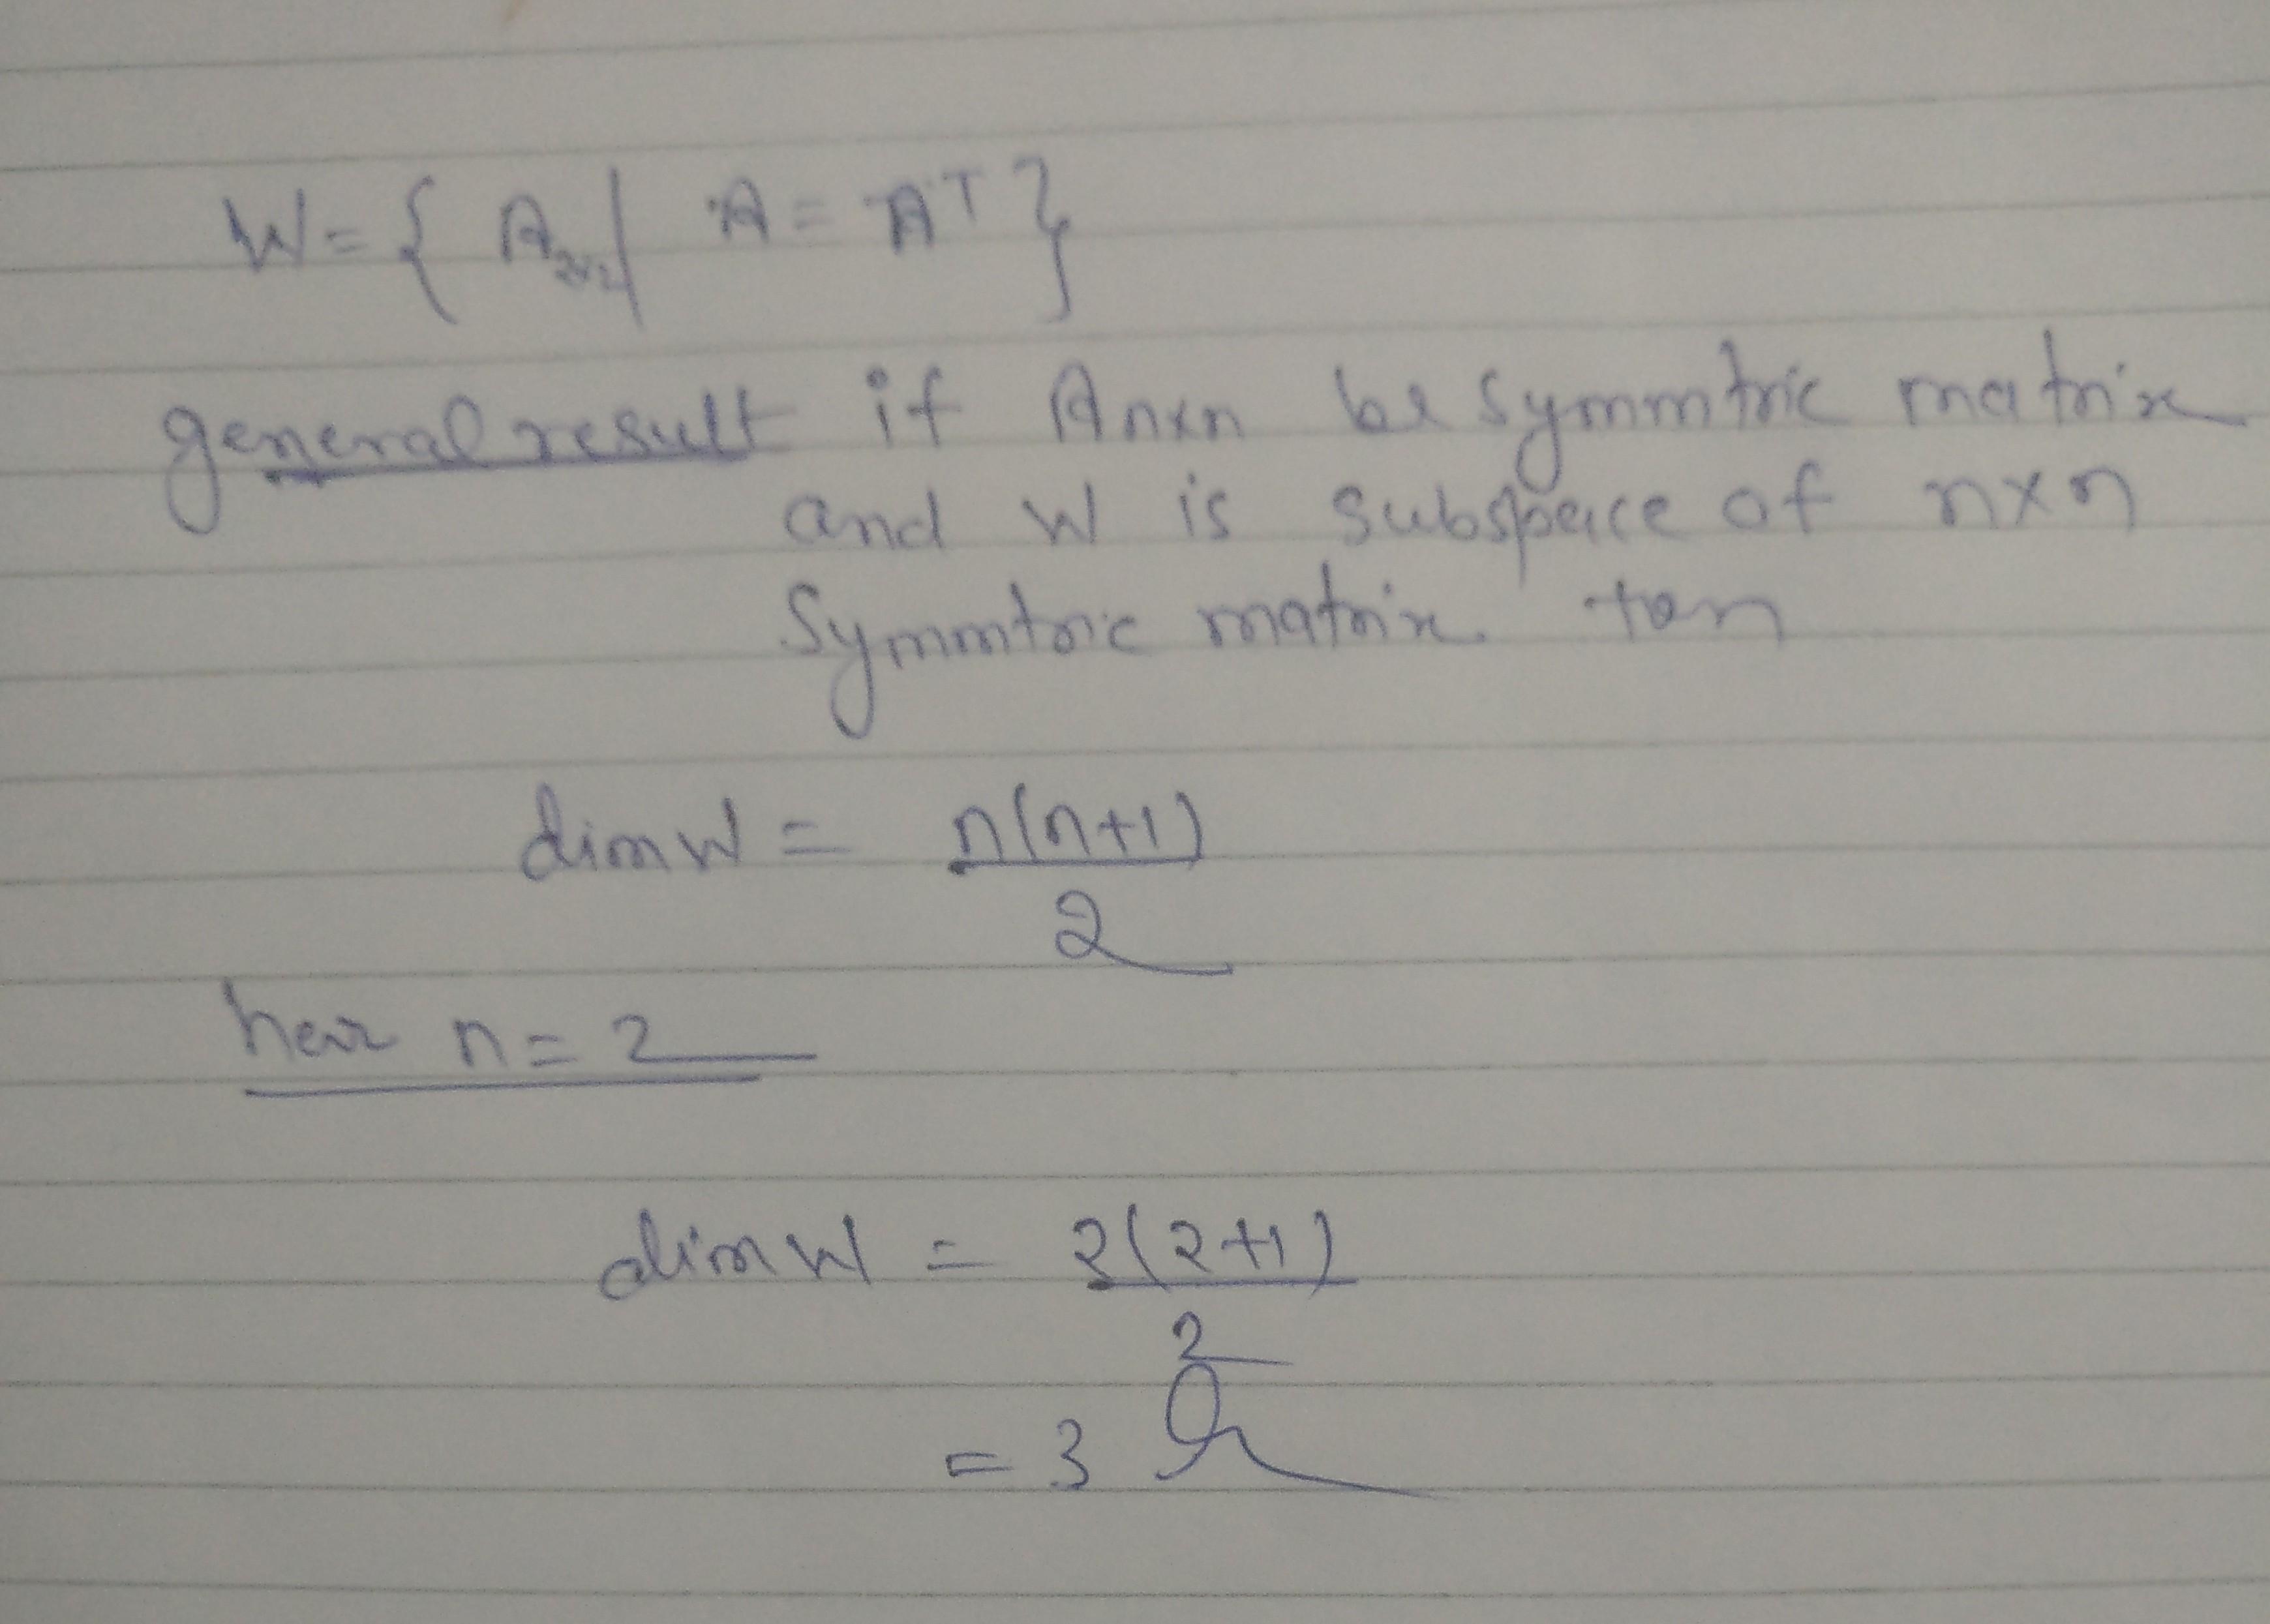 W = { A₂ₓ₂ | A = Aᵀ }
general result if Anxn be symmtric matrix
and W is subspace of nxn
Symmtric matrix. tan
dim W = n(n+1)
2
hear n = 2
dim W = 2(2+1)
2
= 3